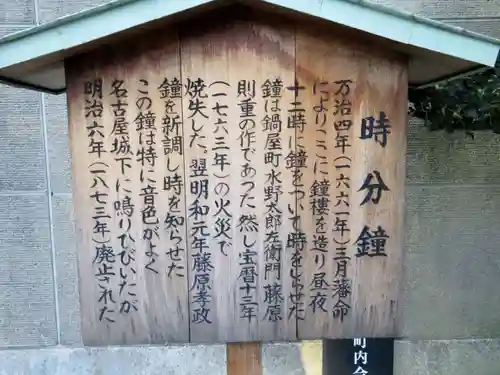 時分鐘
万治四年(一六六一年)三月藩命
によりここに鐘樓を造り昼夜
十二時に鐘をついて時をしらせた
鐘は鍋屋町水野太郎左衛門藤原
則重の作であった然し宝暦十三年
(一七六三年)の火災で
焼失した。翌明和元年藤原孝政
鐘を新調し時を知らせた
この鐘は特に音色がよく
名古屋城下に鳴りひびいたが
明治六年(一八七三年)廃止された
町内会